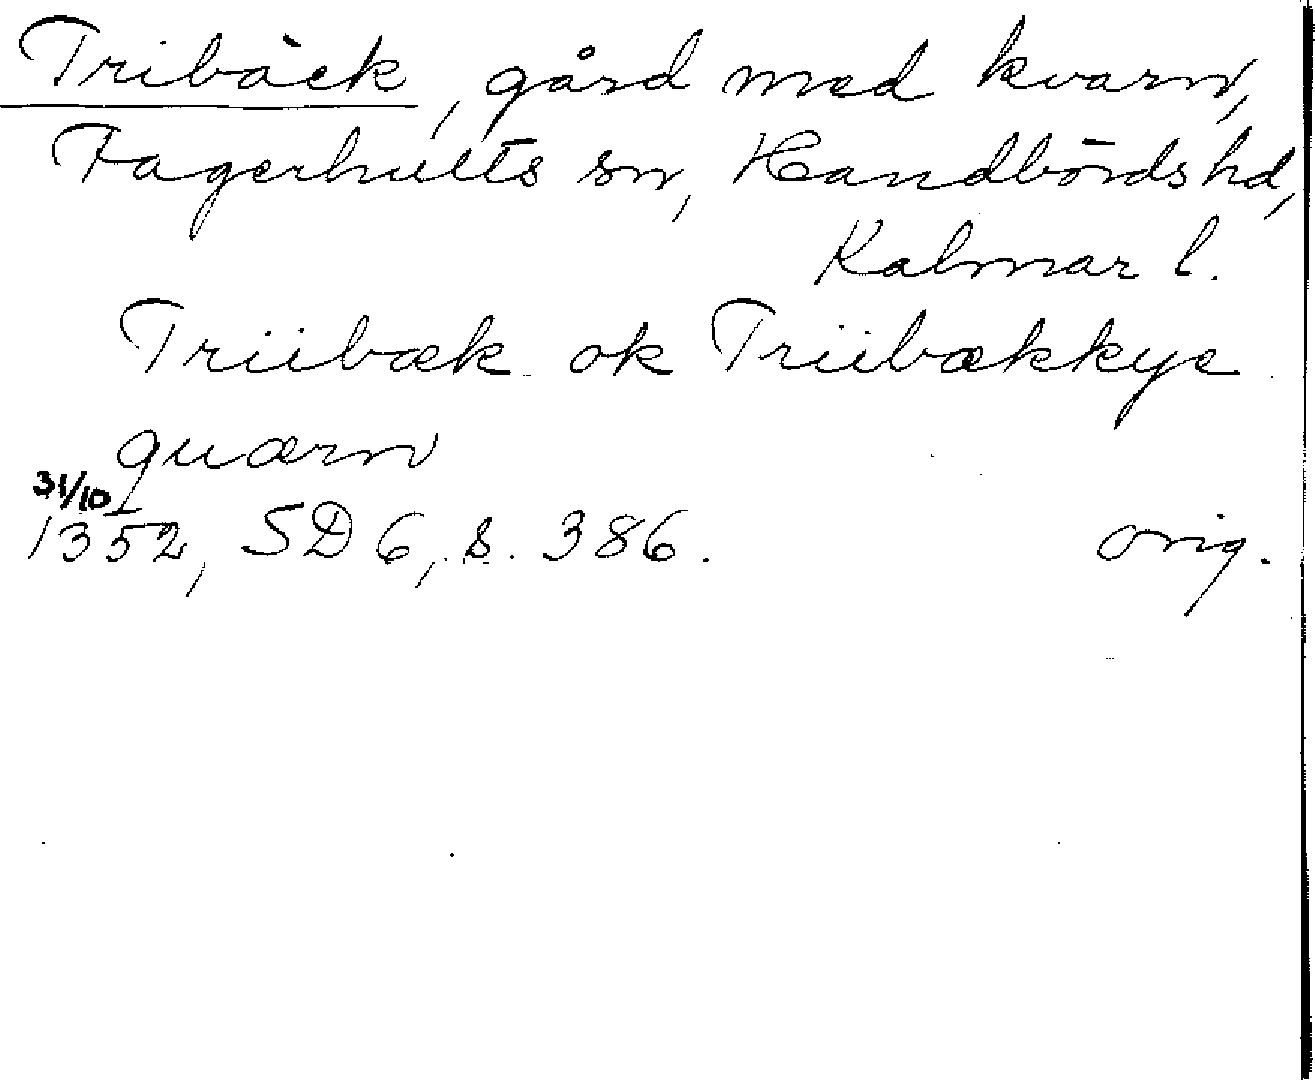 Tribäck, gård med kvarn,
Fagerhults sn, Handbörds hd,
Kalmar l.
Triibæk ok Triibækkye
quærn
31/10
1352, SD 6, s. 386. orig.